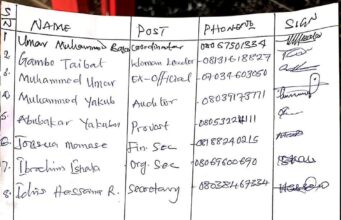 S/N NAME POST PHONE NO SIGN
1 Umar Muhammed Coordinator 08067501334
2. Gambo Taibat Woman Leader - 08131618827
3. Muhammed Umar Ex-Official - 07034603050
4. Muhammed Yakub Auditor - 08039173711
5. Abubakar Yakubu Provost
6. Momase Fin. Sec 08188240215
7. Ibrahim Ishaka Org. Sec - 08069600690
8. Idris Hassana R. Secretary - 08038469334